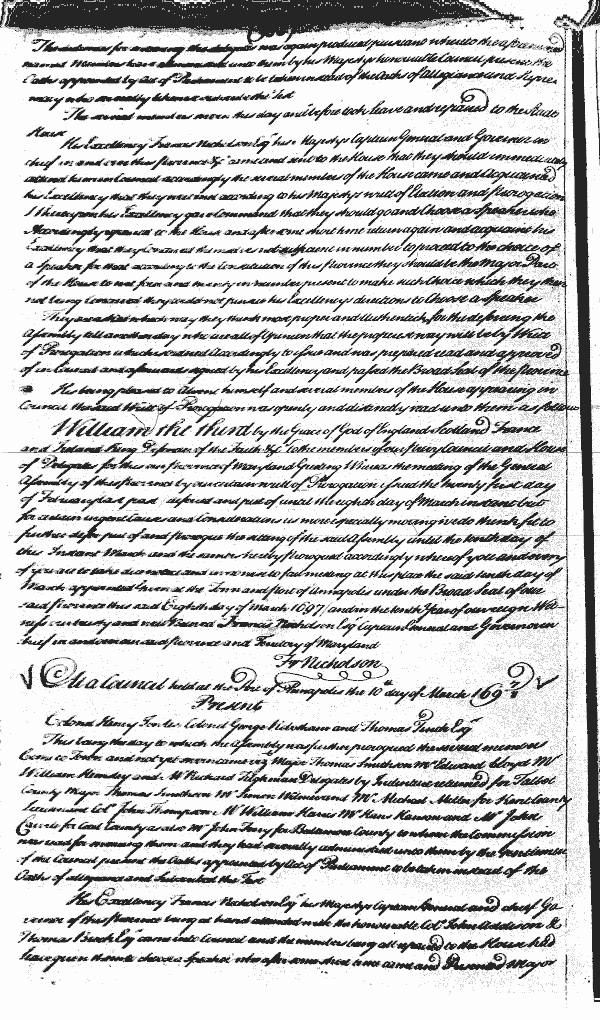 The dedimus for swearing the delegates was again produced pursuant whereto the aforesaid
named Members have administred unto them by his Majestys honourable Council present the
Oaths appointed by Act of Parliament to be taken instead of the Oaths of Allegiance and Supre
macy who severally likewise subscribe the Test
The several members sworn this day and before took leave and repaired to the State
House
His Excellency Francis Nicholson Esqr his Majestys Captain General and Governor in
cheif in and over this province &c came and sent to the House that they should immediately
attend him in Council accordingly the several members of the House came and acquainted
his Excellency that they were met according to his Majestys writt of Election and prorogation
Whereupon his Excellency gave Command that they should go and Choose a Speaker who
Accordingly repaired to the House and after some short time return again and acquaint his
Excellency that they Conceived themselves not sufficient in number to proceed to the choice of
a Speaker for that according to the Constitution of this Province they should be the Major Part
of the House to meet four and twenty in number present to make such Choice which they then
not being Conceived they could not pursue his Excellencys directions to Choose a Speaker
They are asked which way they think most proper and Authentick for the deferring the
Assembly till another day who are all of Opinion that the properest way will be by Writt
of Prorogation which is ordered Accordingly to issue and was prepared read and approved
of in Council and afterwards signed by his Excellency and passed the Broad Seal of the province
His being pleased to himself and several members of the House appearing in
Council the said Writt of Prorogation was openly and distinctly read unto them as follows
William the third by the Grace of God of England Scotland France
and Ireland King Defender of the Faith &c To the members of our Council and House
of Delegates for this our province of Maryland Greeting Whereas the meeting of the General
Assembly of this our province by our certain writt of Prorogation issued the twenty first day
of February last past deferred and put of until the eighth day of March instant but
for certain urgent Causes and Considerations us more especially moving we do think fit to
further defer put of and prorogue the sitting of the said Assembly until the tenth day of
this Instant March and the same is hereby prorogued accordingly whereof you and every
of you are to take due notice and in no wise to fail meeting at this place the said tenth day of
March appointed Given at the Town and Port of Annapolis under the Broad Seal of our
said province this said Eighth day of March 1697 and in the tenth Year of our reign Wit-
ness our trusty and well beloved Francis Nicholson Esqr Captain General and Governour
cheif in and over our said province and Territory of Maryland
Fr Nicholson
At a Council held at the Port of Annapolis the 10th day of March 169 7/8
Present
Colonel Henry Colonel George and Thomas Tench Esqr
This being the day to which the Assembly was further prorogued the several members
Come to Town and not yet sworn came viz Major Thomas Smithson Mr Edward Lloyd Mr
William Hemsley and Mr Richard Tilghman Delegates by Indenture returned for Talbot
County Major Thomas Smithson Mr Simon Wilmer and Mr Michael Miller for Kent County
Lieutenant Colo John Thompson Mr William Harris Mr Hans Hanson and Mr John
for Cecil County as also Mr John Ferry for Baltemore County to whom the Commission
was read for swearing them and they had severally administred unto them by the Gentlemen
of the Council present the Oaths appointed by Act of Parliament to be taken instead of the
Oaths of allegiance and subscribed the Test
His Excellency Francis Nicholson Esqr his Majestys Captain General and cheif Go
vernor of this province being at hand attended with the honourable Colo John Addison &
Thomas Brooke Esqr came into Council and the members being all repaired to the House had
leave given them to choose a Speaker who after some short time came and Presented Major